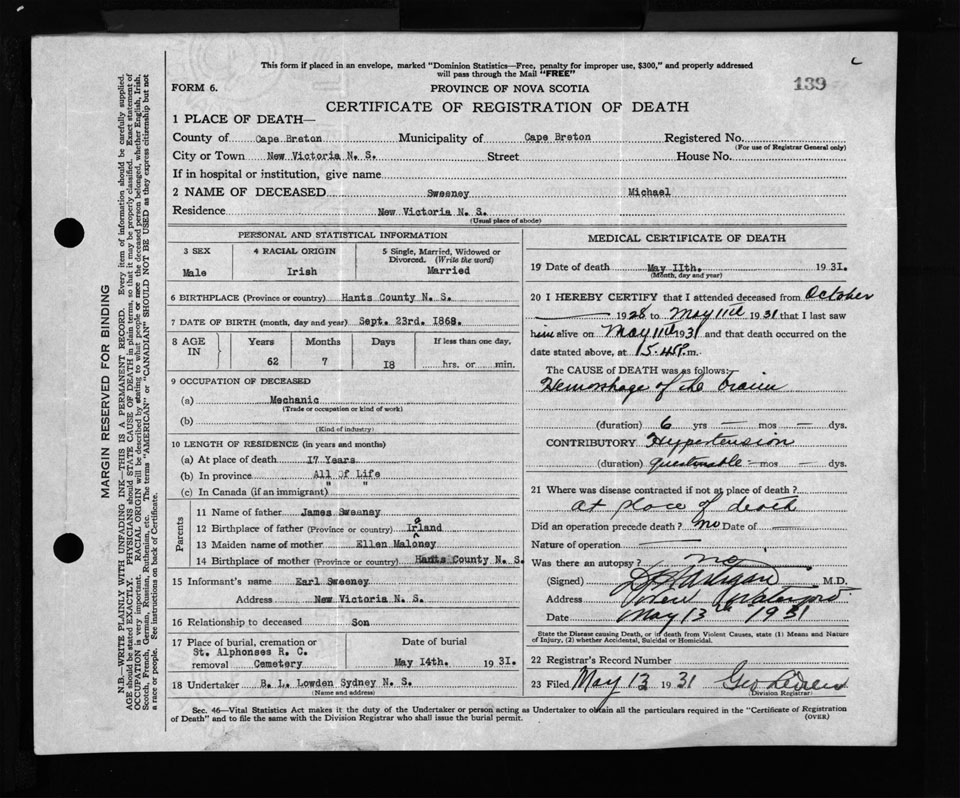 This form if placed in an envelope, marked "Dominion Statistics—Free, penalty for improper use, $300," and properly addressed
will pass through the Mail "FREE"
139
FORM 6.
PROVINCE OF NOVA SCOTIA
CERTIFICATE OF REGISTRATION OF DEATH
1 PLACE OF DEATH—
County of Cape Breton Municipality of Cape Breton Registered No.
(For use of Registrar General only)
City or Town New Victoria N. S. Street House No.
If in hospital or institution, give name
2 NAME OF DECEASED Sweeney Michael
Residence New Victoria N. S.
(Usual place of abode)
PERSONAL AND STATISTICAL INFORMATION
3 SEX 4 RACIAL ORIGIN 5 Single, Married, Widowed or
Divorced. (Write the word)
Male Irish Married
6 BIRTHPLACE (Province or country) Hants County N. S.
7 DATE OF BIRTH (month, day and year) Sept. 23rd. I868.
8 AGE IN Years Months Days If less than one day,
62 7 I8 hrs. or min.
9 OCCUPATION OF DECEASED
(a) Mechanic
(Trade or occupation or kind of work)
(b)
(Kind of industry)
10 LENGTH OF RESIDENCE (in years and months)
(a) At place of death I7 Years
(b) In province All Of Life
(c) In Canada (if an immigrant) " "
Parents
11 Name of father James Sweeney
12 Birthplace of father (Province or country) Irland
a
13 Maiden name of mother Ellen Maloney
14 Birthplace of mother (Province or country) Hants County N. S.
15 Informant's name Earl Sweeney
Address New Victoria N. S.
16 Relationship to deceased Son
17 Place of burial, cremation or Date of burial
St. Alphonses R. C.
removal Cemetery May I4th. 1931.
18 Undertaker B. L. Lowden Sydney N. S.
(Name and address)
MEDICAL CERTIFICATE OF DEATH
19 Date of death May IIth. 1931.
(Month, day and year)
20 I HEREBY CERTIFY that I attended deceased from October
— 1928 to May 11th 1931 that I last saw
him alive on May 11th 1931 and that death occurred on
date stated above, at m.
The CAUSE OF DEATH was as follows:
Hemorrhage of the Brain
(duration) 6 yrs — mos — dys.
CONTRIBUTORY Hypertension
(duration) questionable — mos — dys.
21 Where was disease contracted if not at place of death?
at place of death
Did an operation precede death? no Date of —
Nature of operation —
Was there an autopsy? no
(Signed) M.D.
Address New Waterford
Date May 13th 1931
State the Disease causing Death, or in death from Violent Causes, state (1) Means and Nature
of Injury, (2) whether Accidental, Suicidal or Homicidal.
22 Registrar's Record Number
23 Filed May 13 1931 Geo
(Division Registrar)
Sec. 46—Vital Statistics Act makes it the duty of the Undertaker or person acting as Undertaker to obtain all the particulars required in the "Certificate of Registration
of Death" and to file the same with the Division Registrar who shall issue the burial permit.
(OVER)
MARGIN RESERVED FOR BINDING
N.B.—WRITE PLAINLY WITH UNFADING INK—THIS IS A PERMANENT RECORD. Every item of information should be carefully supplied.
AGE should be stated EXACTLY. PHYSICIANS should STATE CAUSE OF DEATH in plain terms, so that it may be properly classified. Exact statement of
OCCUPATION is very important. RACIAL ORIGIN will be described by stating to what people or race the deceased person belonged, whether English, Irish,
Scotch, French, German, Russian, Ruthenian, etc. The terms "AMERICAN" or "CANADIAN" SHOULD NOT BE USED as they express citizenship but not
a race or people. See instructions on back of Certificate.